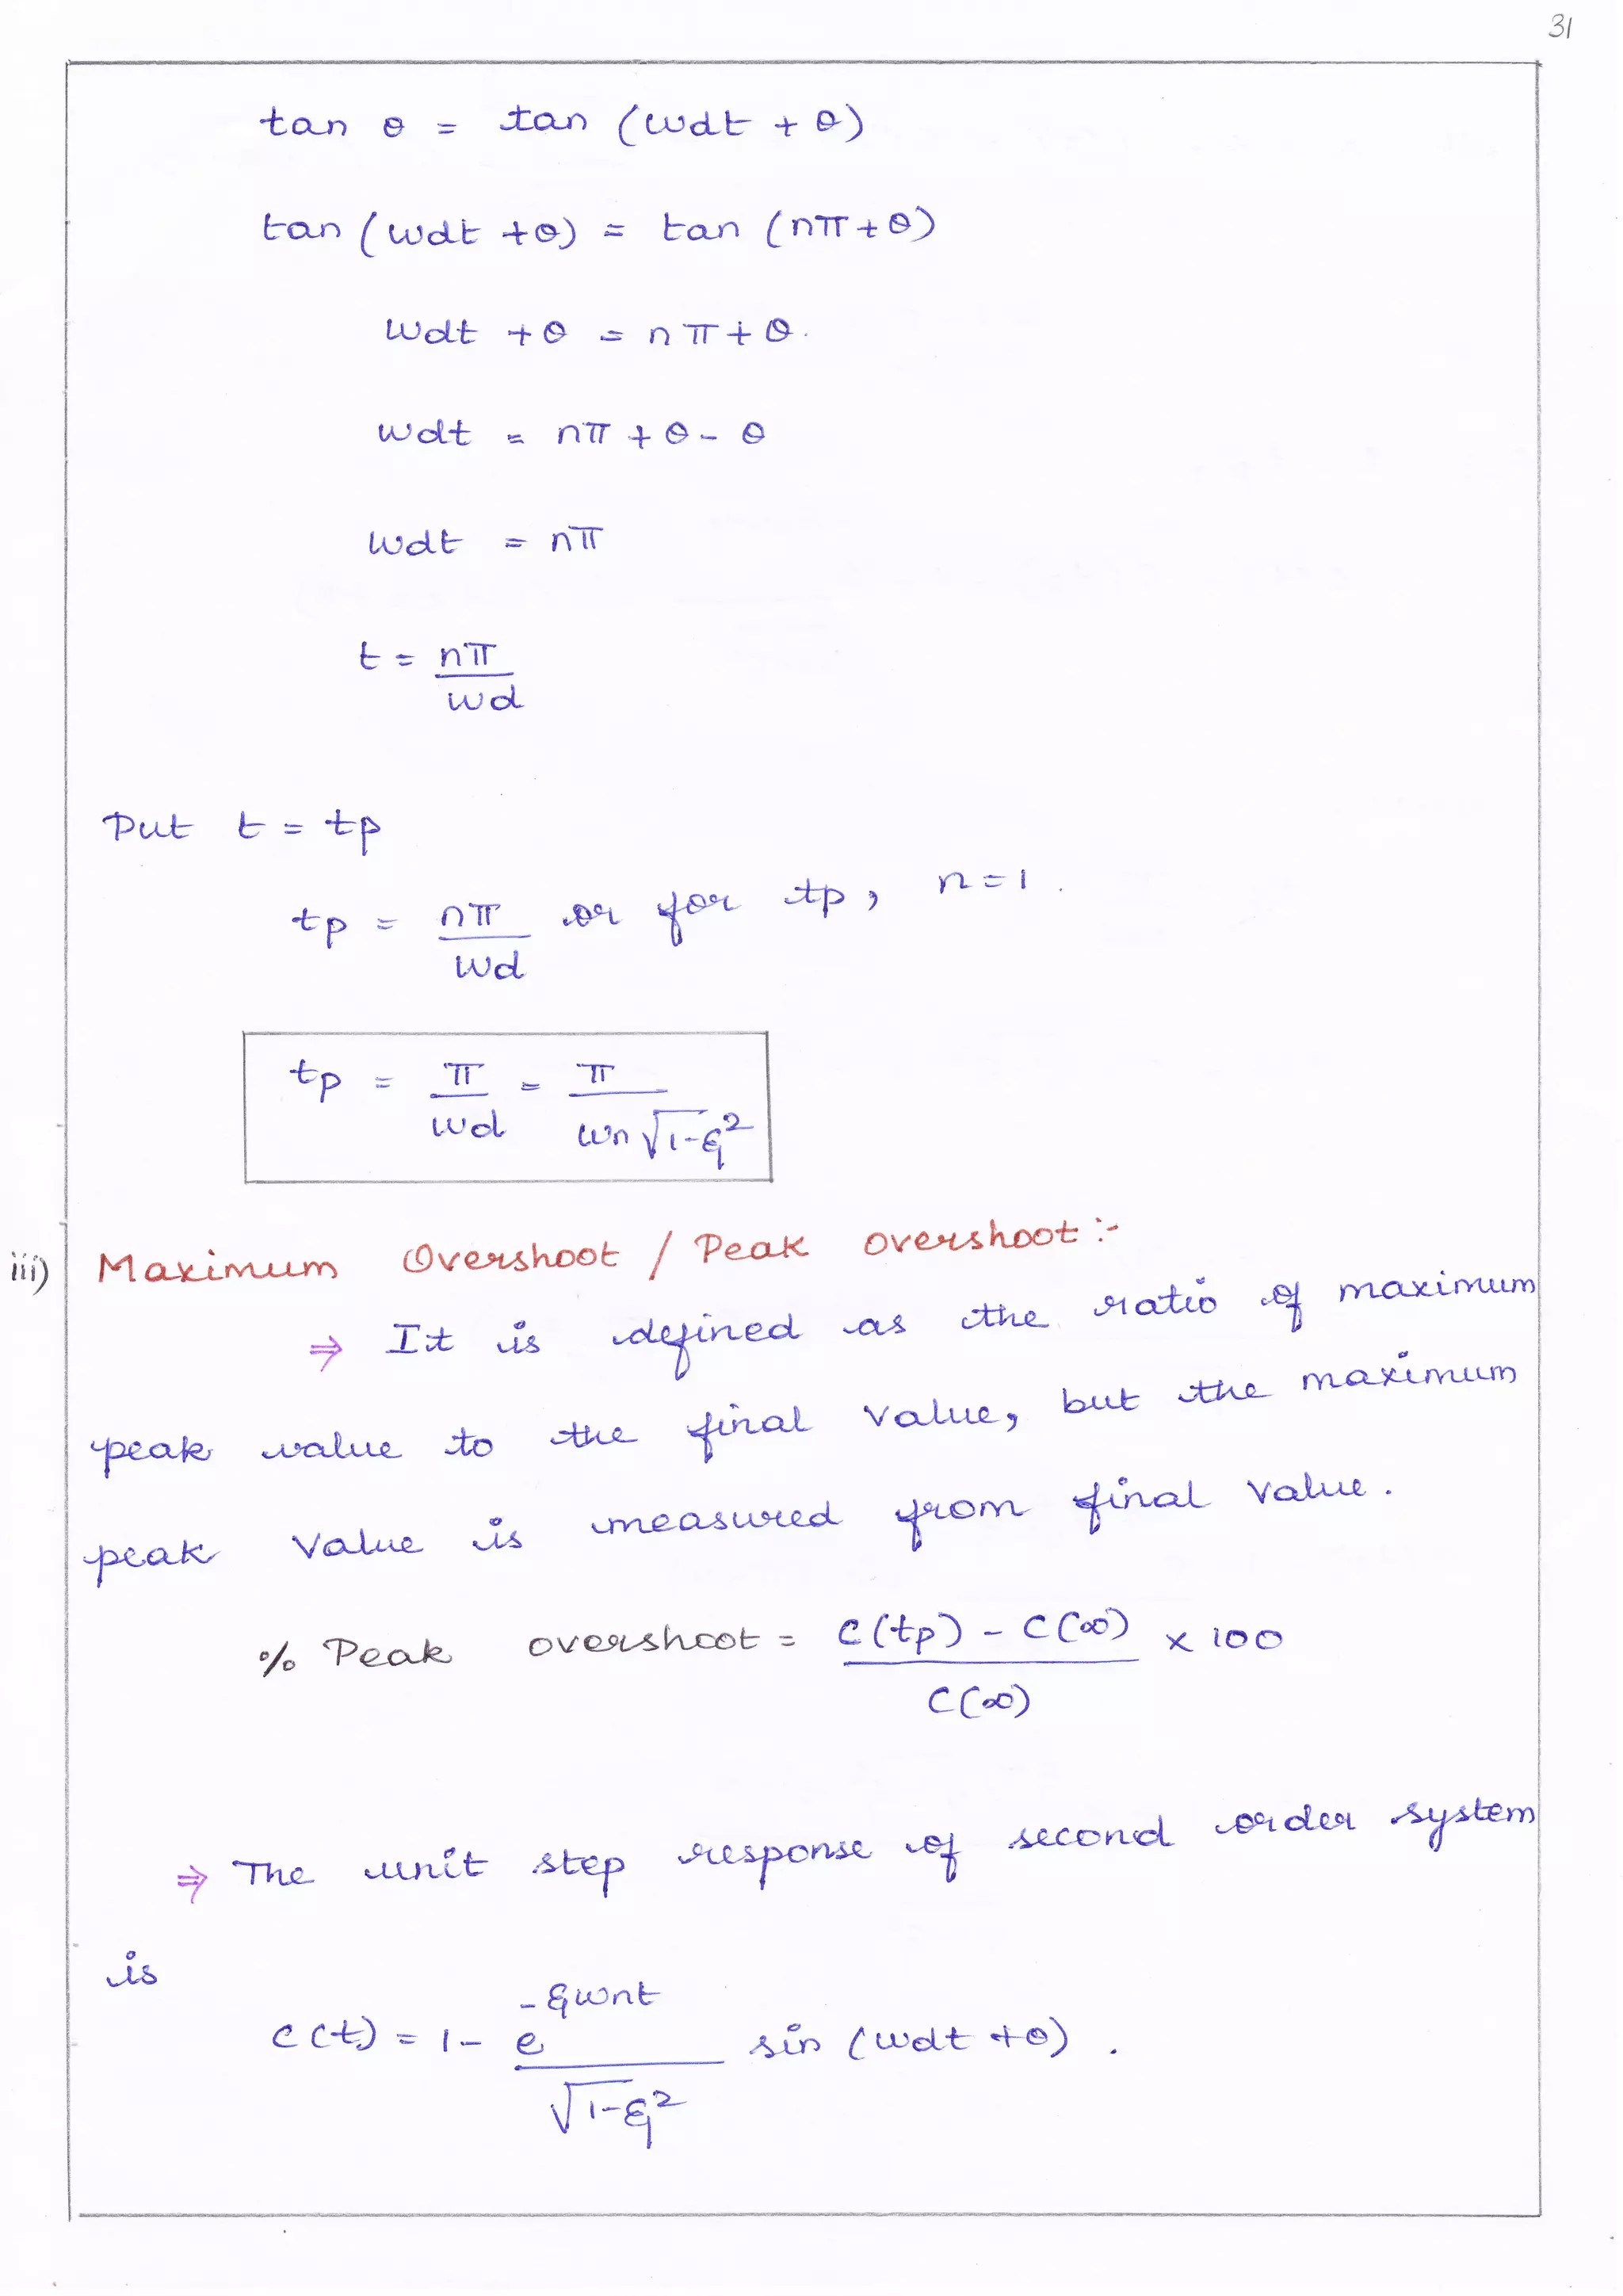 31
tan θ = tan (wdt + θ)
tan (wdt + θ) = tan (nπ + θ)
wdt + θ = nπ + θ.
wdt = nπ + θ - θ
wdt = nπ
t = nπ
wd
Put t = tp
tp = nπ or for tp, n = 1.
wd
tp = π = π
wd wn √1-ξ²
iii) Maximum Overshoot / Peak overshoot :-
⇒ It is defined as the ratio of maximum
peak value to the final value, but the maximum
peak value is measured from final value.
% Peak overshoot = C(tp) - C(∞) × 100
C(∞)
⇒ The unit step response of second order system
is
-ξwnt
c(t) = 1 - e sin (wdt + θ).
√1-ξ²